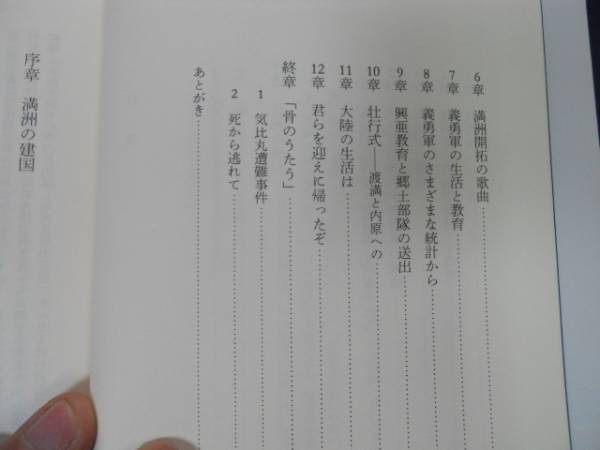 6章　満洲開拓の歌曲
7章　義勇軍の生活と教育
8章　義勇軍のさまざまな統計から
9章　興亜教育と郷土部隊の送出
10章　壮行式——渡満と内原への
11章　大陸の生活は
12章　君らを迎えに帰ったぞ
終章　「骨のうたう」
1　気比丸遭難事件
2　死から逃れて
あとがき
序章　満洲の建国